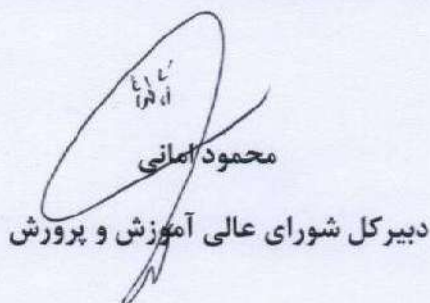 محمود امانی
دبیرکل شورای عالی آموزش و پرورش